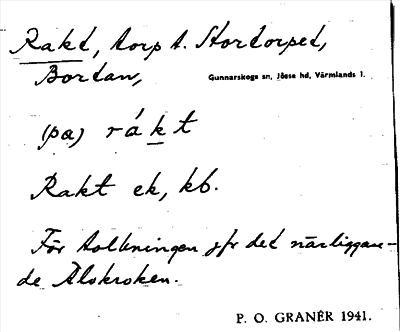 Rakt, torp t. Stortorpet,
Bortan,
Gunnarskogs sn, Jösse hd, Värmlands l.
(pa) rákt
Rakt ek, kb.
För tolkningen jfr det närliggan-
de Älskroken.
P. O. GRANÉR 1941.